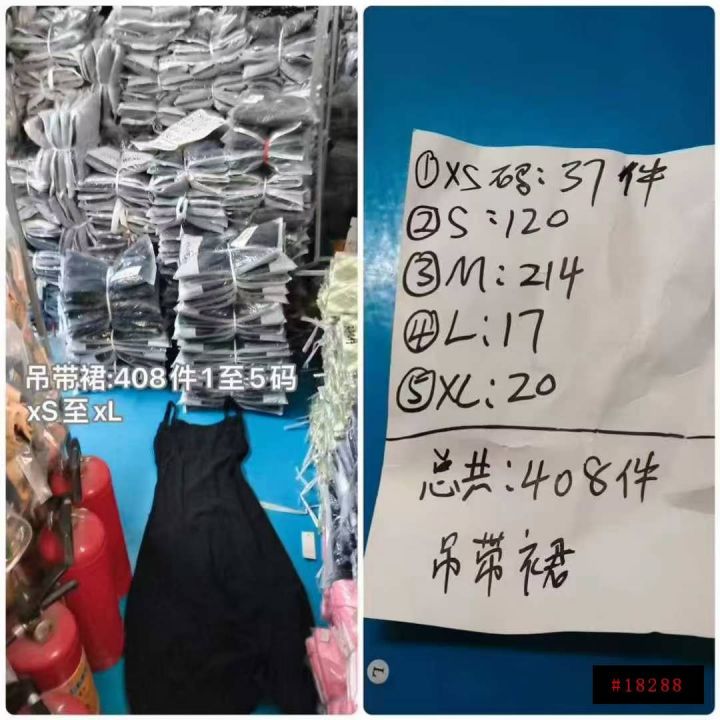 吊带裙:408件1至5码
xS至xL
①XS码:37件
②S:120
③M:214
④L:17
⑤XL:20
总共:408件
吊带裙
L
#18288